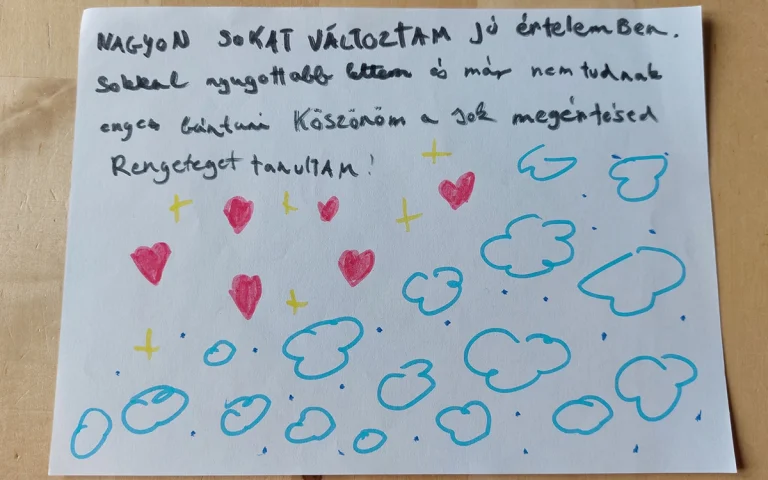 NAGYON SOKAT VÁLTOZTAM jó értelemBen.
Sokkal nyugottabb lettem és már nem tudnak
engem bántani Köszönöm a sok megértésed
Rengeteget tanulTAM!